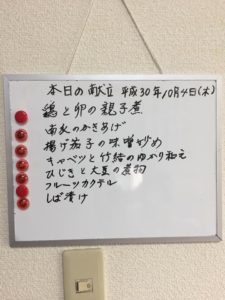 本日の献立 平成30年10月4日(木)
鶏と卵の親子煮
南瓜のかきあげ
揚げ茄子の味噌炒め
キャベツと竹輪のゆかり和え
ひじきと大豆の煮物
フルーツカクテル
しば漬け